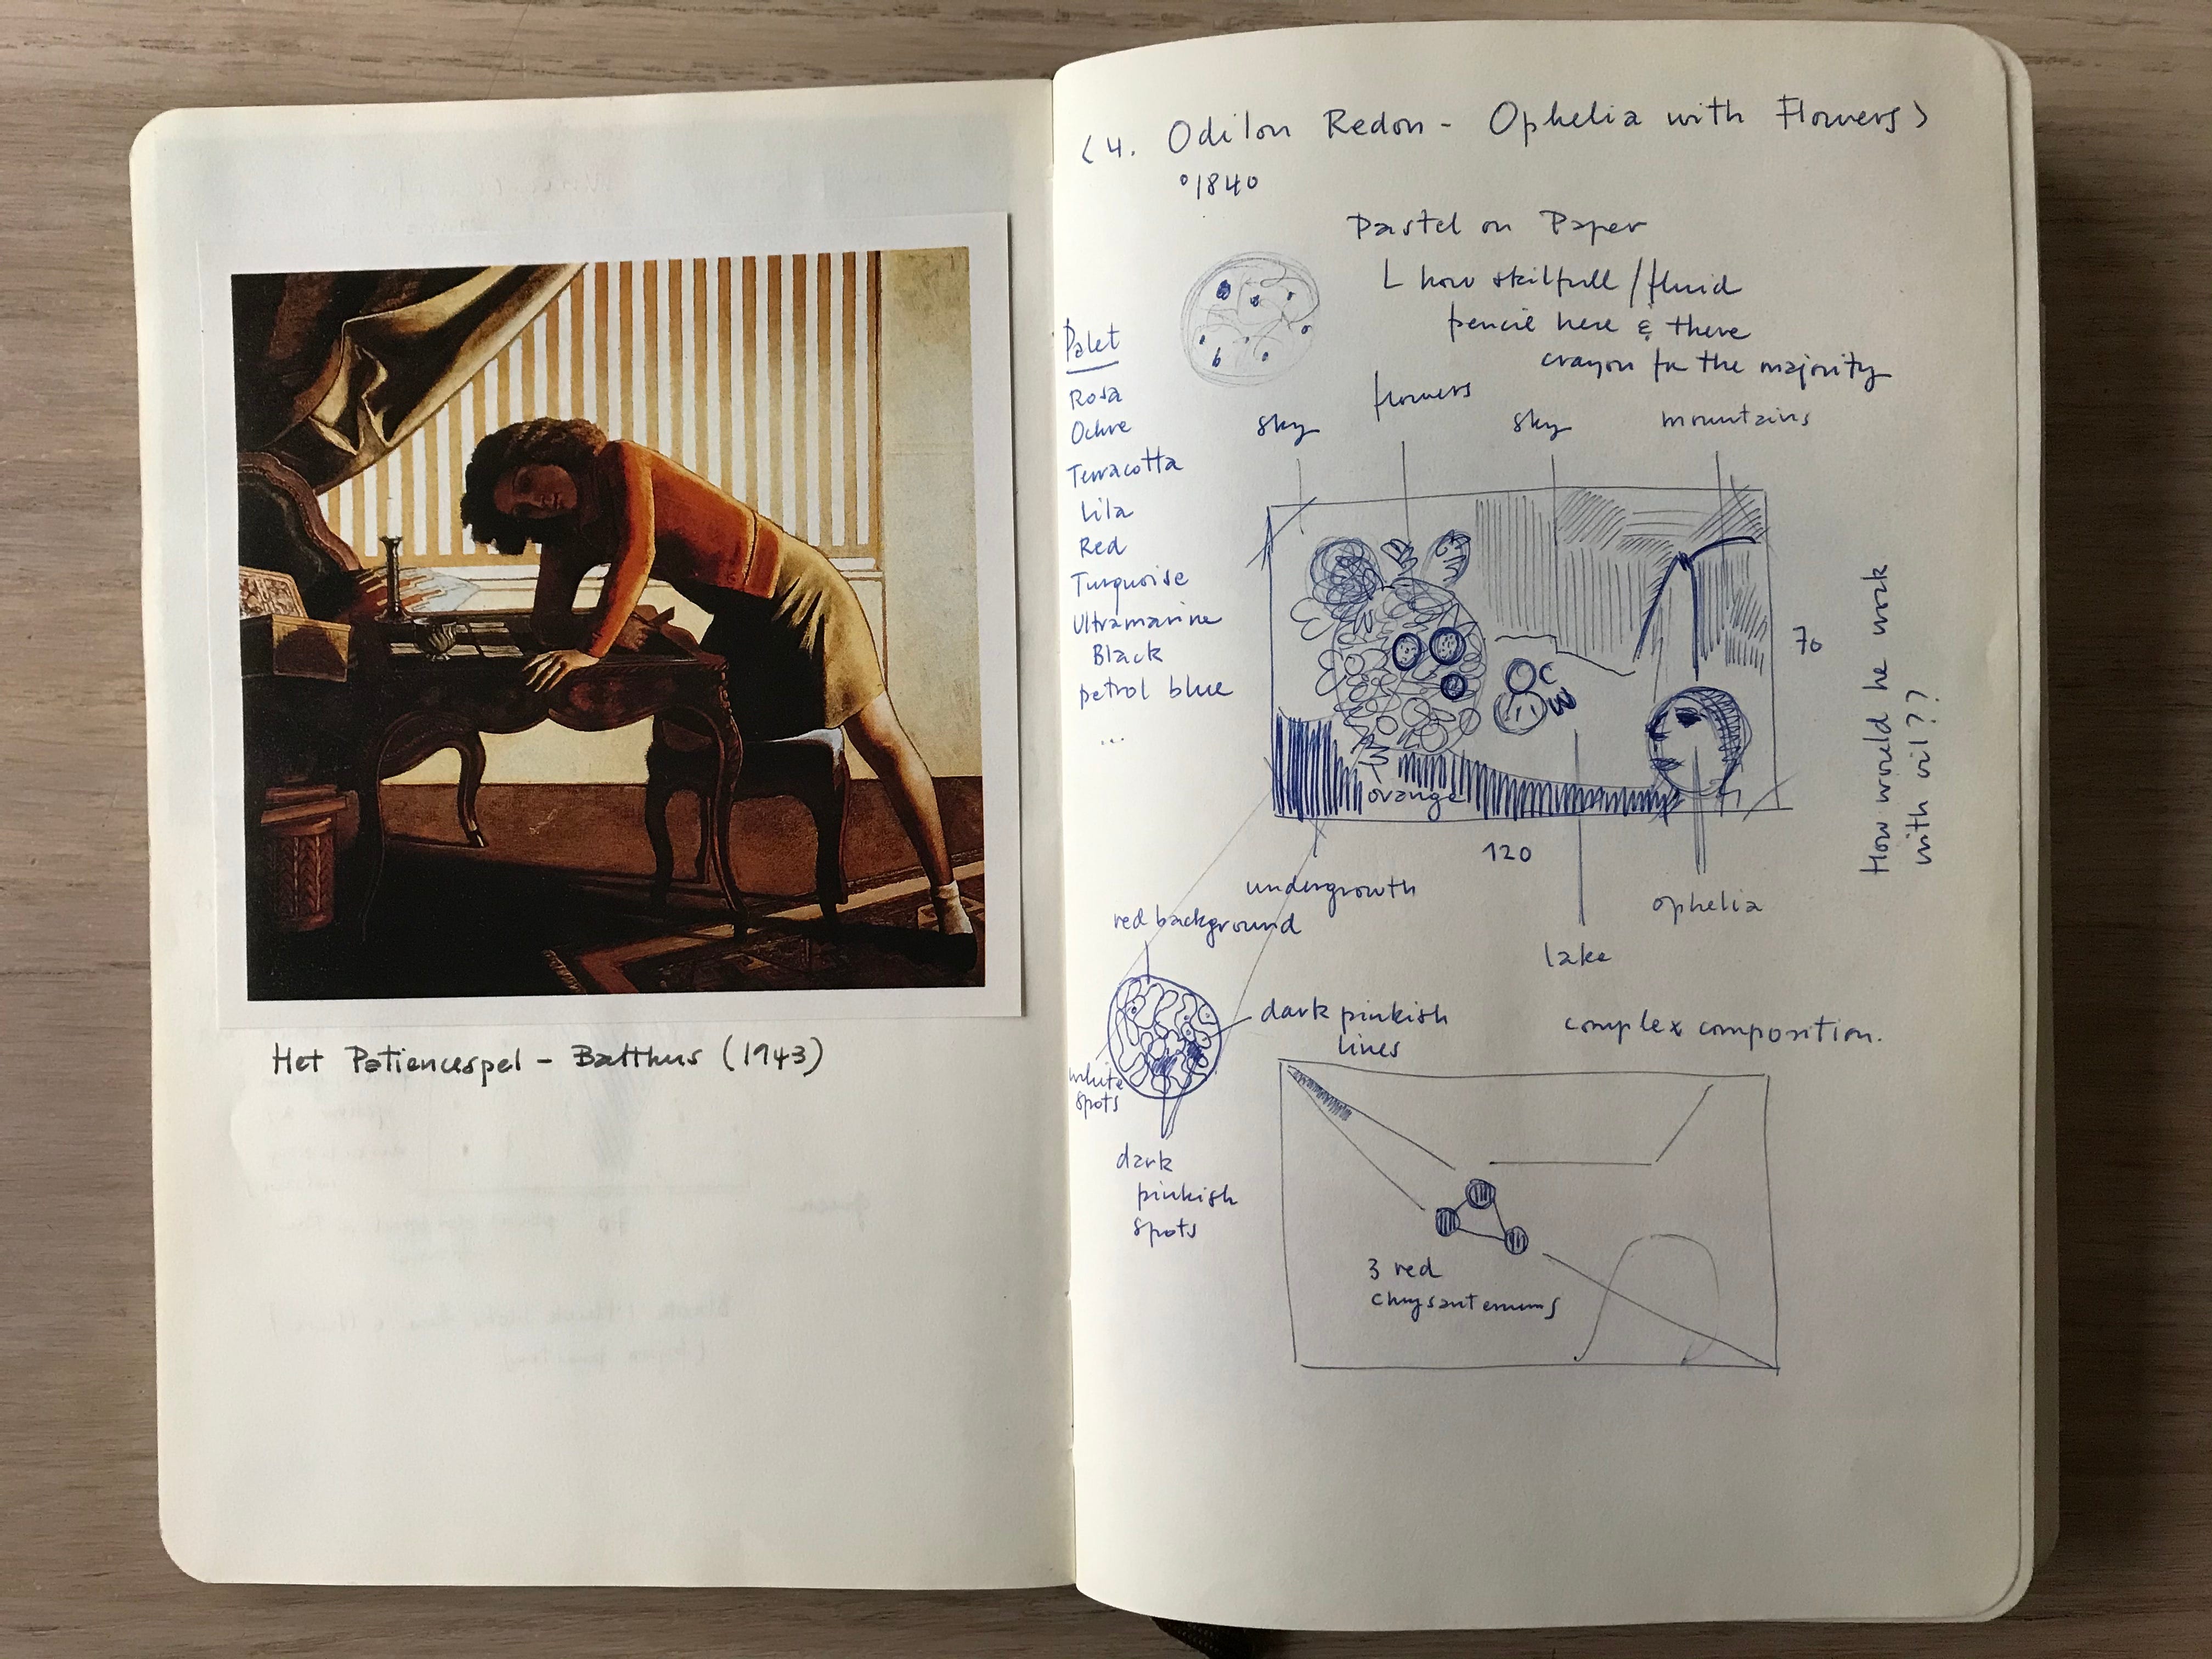 Het Patiencespel - Balthus (1943)
(4. Odilon Redon - Ophelia with Flowers)
°1840
Pastel on Paper
how skilfull / fluid
pencil here & there
crayon for the majority
Palet
Rosa
Ochre
Terracotta
Lila
Red
Turquoise
Ultramarine
Black
petrol blue
...
sky
flowers
sky
mountains
orange
70
120
How would he work
with oil??
undergrowth
ophelia
lake
red background
dark pinkish
lines
white
spots
dark
pinkish
spots
complex composition.
3 red
chrysantemums